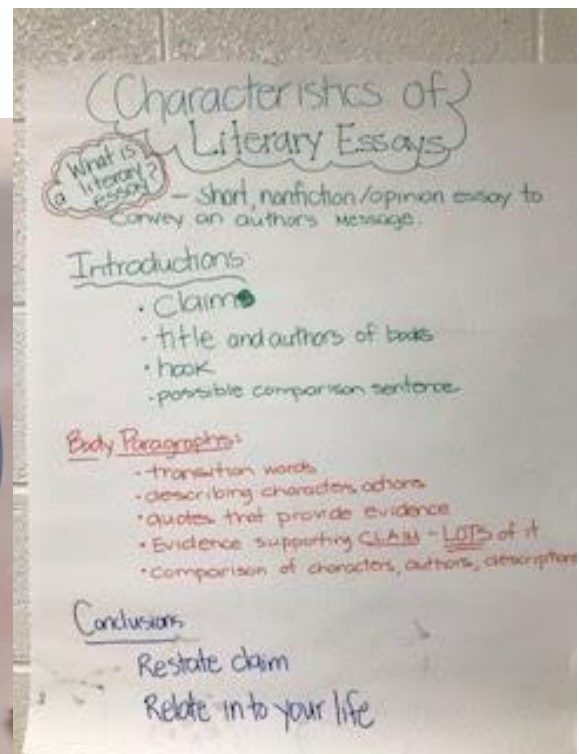 Characteristics of
Literary Essays
What is
a literary
essay?
- Short, nonfiction/opinion essay to
convey an authors message.
Introductions
· Claim
· title and authors of books
· hook
· possible comparison sentence
Body Paragraphs:
· transition words
· describing characters actions
· quotes that provide evidence
· Evidence supporting CLAIM - LOTS of it
· comparison of characters, authors, descriptions
Conclusions
Restate claim
Relate in to your life